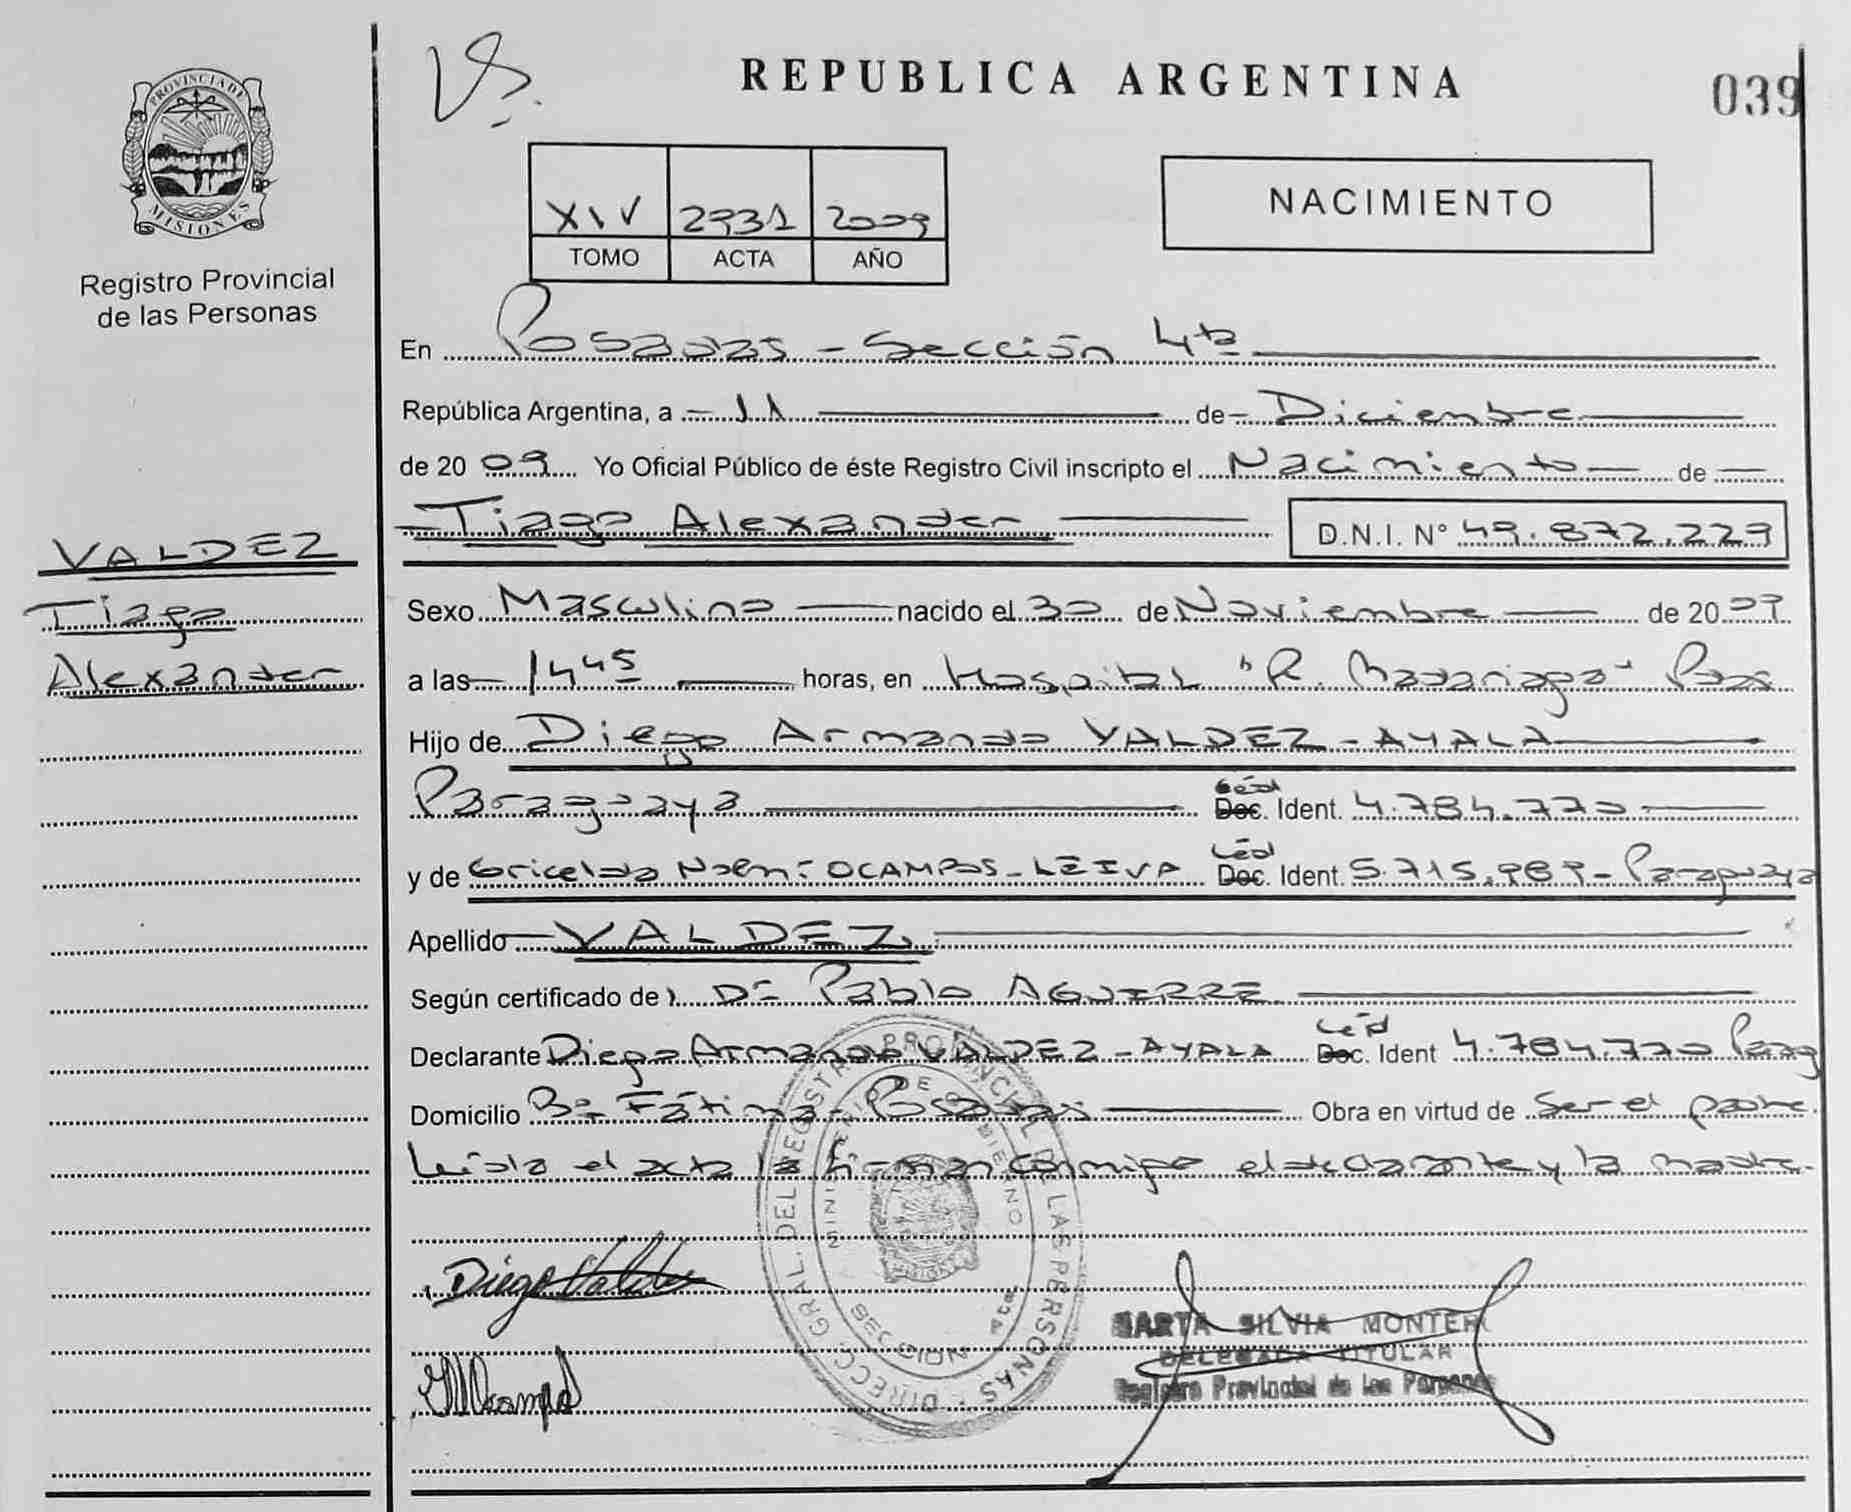 PROVINCIA DE
MISIONES
Registro Provincial
de las Personas
VALDEZ
Tiago
Alexander
REPUBLICA ARGENTINA
039
XIV 2931 2009
TOMO ACTA AÑO
NACIMIENTO
En Posadas - Sección 4ta
República Argentina, a - 11 de - Diciembre
de 2009 Yo Oficial Público de éste Registro Civil inscripto el Nacimiento de
Tiago Alexander D.N.I. N° 49.872.229
Sexo Masculino nacido el 30 de Noviembre de 2009
a las 14 45 horas, en Hospital "R. Madariaga" Pdas
Hijo de Diego Armando VALDEZ - AYALA
Paraguaya Céd Doc. Ident. 4.784.770
y de Gricelda Noemí OCAMPOS - LEIVA Céd Doc. Ident. 5.715.989 - Paraguaya
Apellido VALDEZ
Según certificado de Dr Pablo AGUIRRE
Declarante Diego Armando VALDEZ - AYALA Céd Doc. Ident 4.784.770 Parag
Domicilio Bº Fátima - Posadas Obra en virtud de Ser el padre.
Leída el acta la firman conmigo el declarante y la madre.
Diego Valdez
DIRECC GRAL. DEL REGISTRO PROVINCIAL DE LAS PERSONAS
MINISTERIO DE GOBIERNO
MISIONES
SECCION 4ta
MARTA SILVIA MONTER
DELEGADA TITULAR
Registro Provincial de las Personas